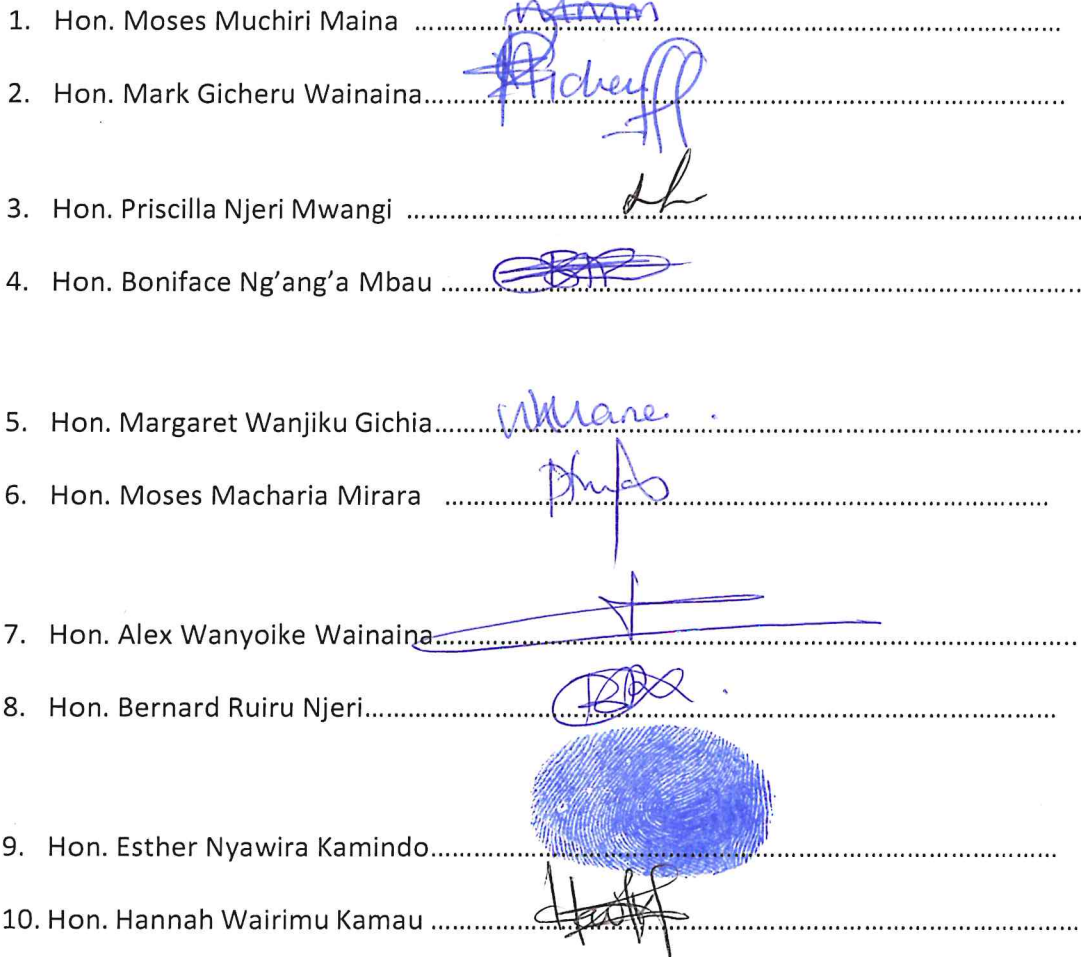 1. Hon. Moses Muchiri Maina ........................................................................
2. Hon. Mark Gicheru Wainaina........................................................................
3. Hon. Priscilla Njeri Mwangi ........................................................................
4. Hon. Boniface Ng’ang’a Mbau ........................................................................
5. Hon. Margaret Wanjiku Gichia........................................................................
6. Hon. Moses Macharia Mirara ........................................................................
7. Hon. Alex Wanyoike Wainaina........................................................................
8. Hon. Bernard Ruiru Njeri........................................................................
9. Hon. Esther Nyawira Kamindo........................................................................
10. Hon. Hannah Wairimu Kamau ........................................................................